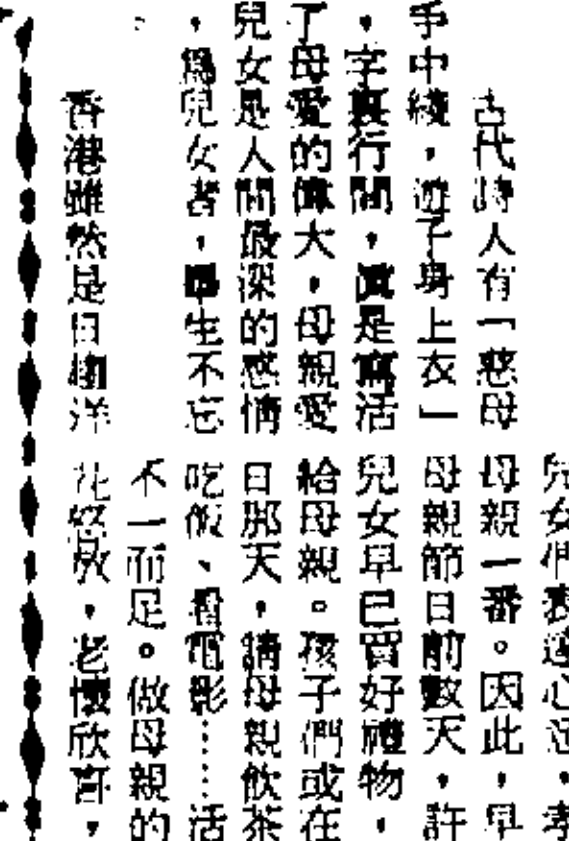 古代詩人有「慈母
手中綫，遊子身上衣」
，字裏行間，眞是寫活
了母愛的偉大，母親愛
兒女是人間最深的感情
，爲兒女者，畢生不忘
香港雖然是日趨洋
兒女們表達心活，孝
母親一番。因此，早
母親節日前數天，許
兒女早已買好禮物，
給母親。孩子們或在
日那天，請母親飲茶
吃飯、看電影……活
不一而足。做母親的
花怒放，老懷欣喜，